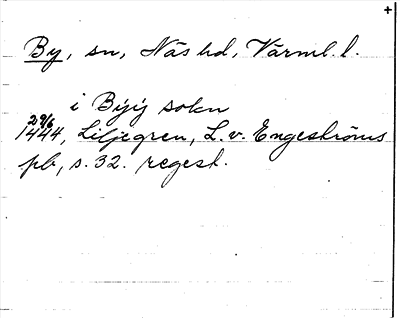 +
By, sn, Näs hd, Värml. l.
i Byiy sokn
29/6
1444, Liljegren, L. v. Engeströms
pb, s. 32. regest.